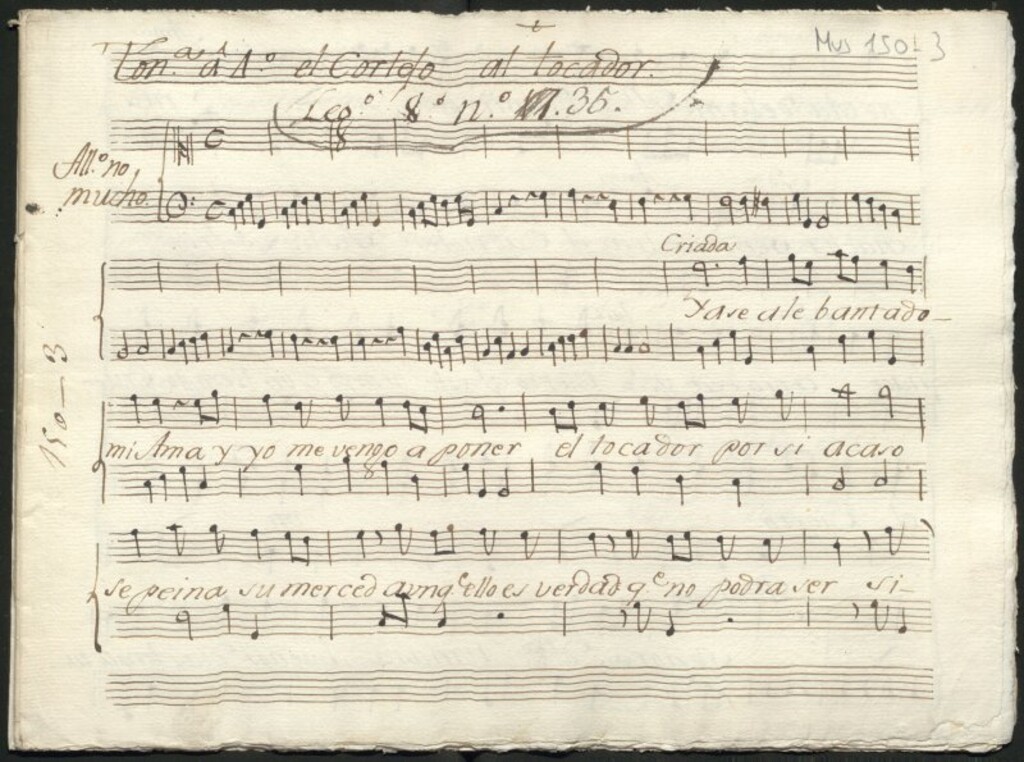 Mus 150-3
Ton.as a 4.o el Cortejo al tocador.
Leg.o 8.o n.o 36.
All.o no
mucho
Criada
Ya se a le bantado
mi Ama y yo me vengo a poner el tocador por si acaso
se peina su merced aunq.e ello es verdad q.e no podra ser si
150-3